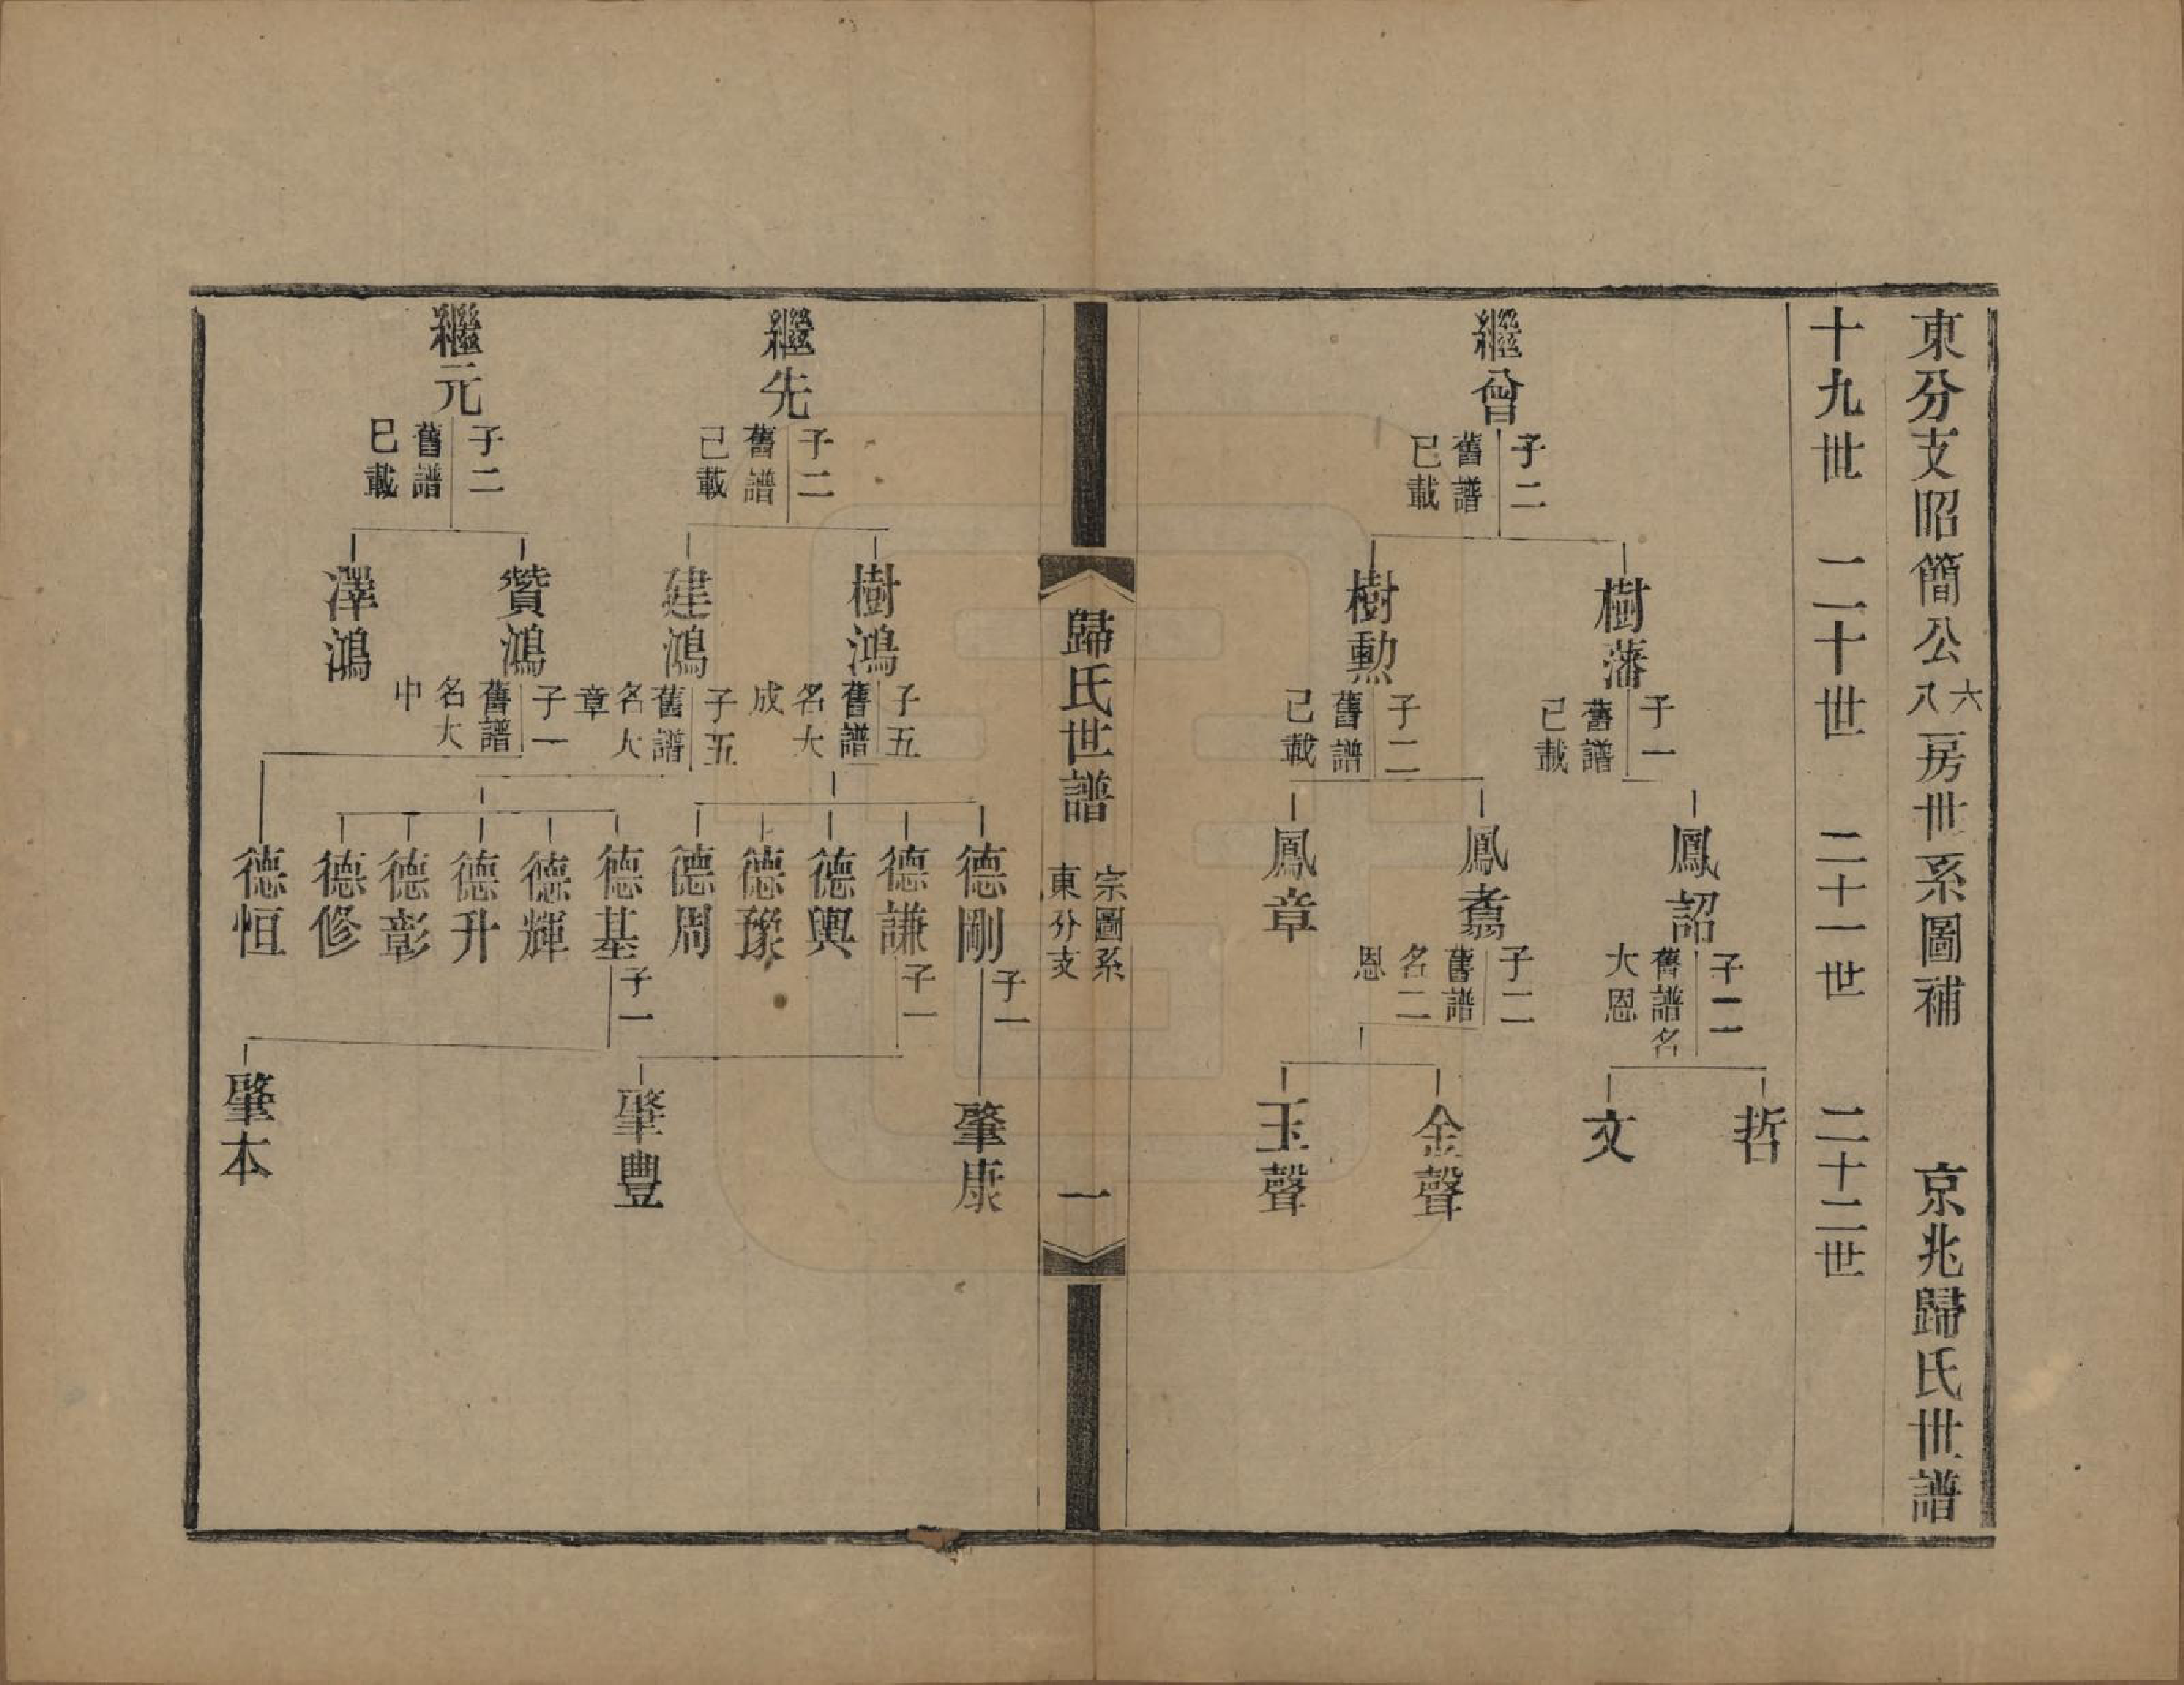 東分支昭簡公六八房世系圖補　京兆歸氏世譜
十九世　二十世　二十一世　二十二世
繼曾
子二
舊譜
已載
樹藩
子一
舊譜
已載
樹勲
子二
舊譜
已載
鳳詔
子二
舊譜名
大恩
鳳翥
子二
舊譜
名二
恩
鳳章
哲
文
金聲
玉聲
歸氏世譜
宗圖系
東分支
一
繼先
子二
舊譜
已載
繼元
子二
舊譜
已載
樹鴻
子五
舊譜
名大
成
建鴻
子五
舊譜
名大
章
贊鴻
子一
舊譜
名大
中
澤鴻
德剛
子一
德謙
子一
德輿
德豫
德周
德基
子一
德輝
德升
德彰
德修
德恒
肇康
肇豐
肇本